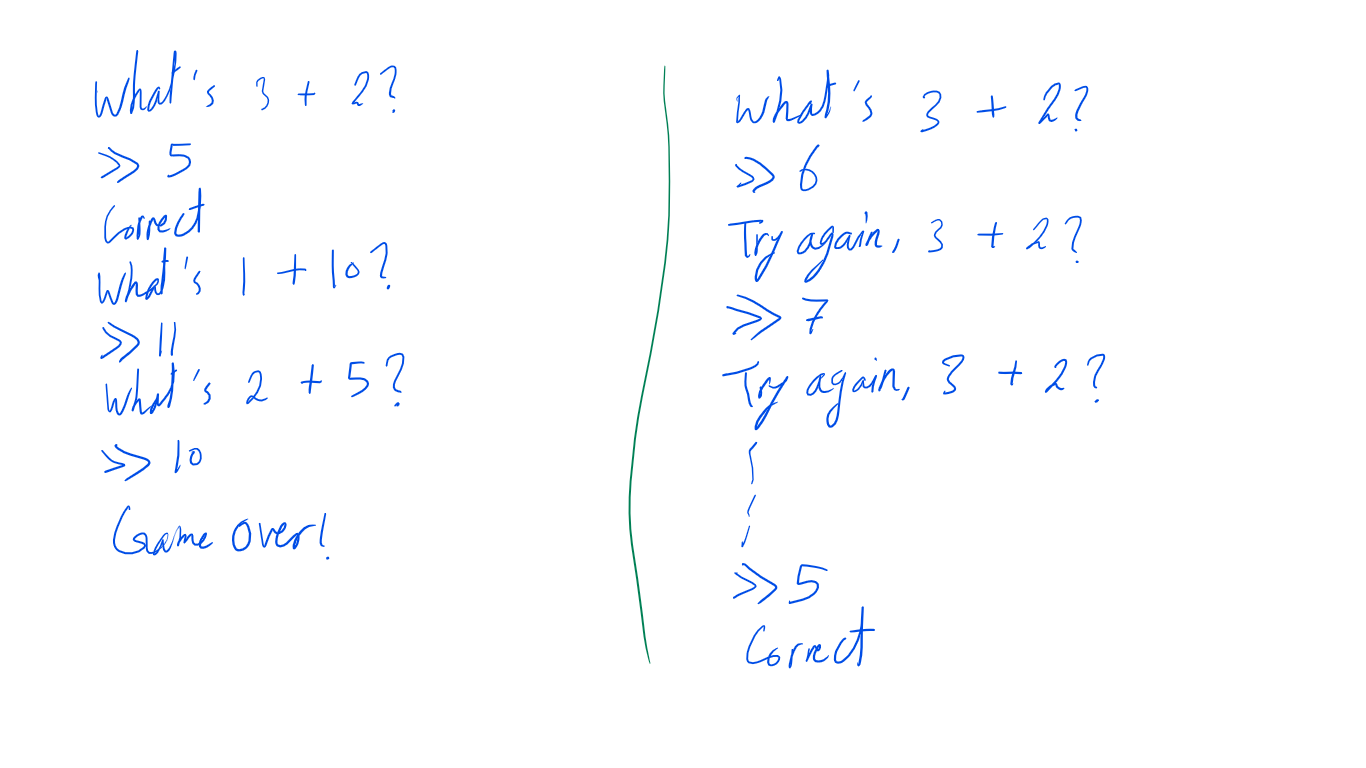 What's 3 + 2?
>> 5
Correct
What's 1 + 10?
>> 11
What's 2 + 5?
>> 10
Game Over!
What's 3 + 2?
>> 6
Try again, 3 + 2?
>> 7
Try again, 3 + 2?
>> 5
Correct